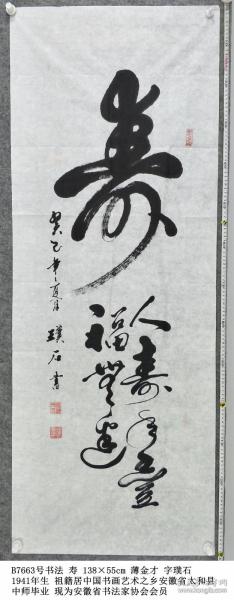 寿
人寿年丰
福无边
癸巳年夏月
璞石书
B7663号书法 寿 138×55cm 薄金才 字璞石
1941年生 祖籍居中国书画艺术之乡安徽省太和县
中师毕业 现为安徽省书法家协会会员